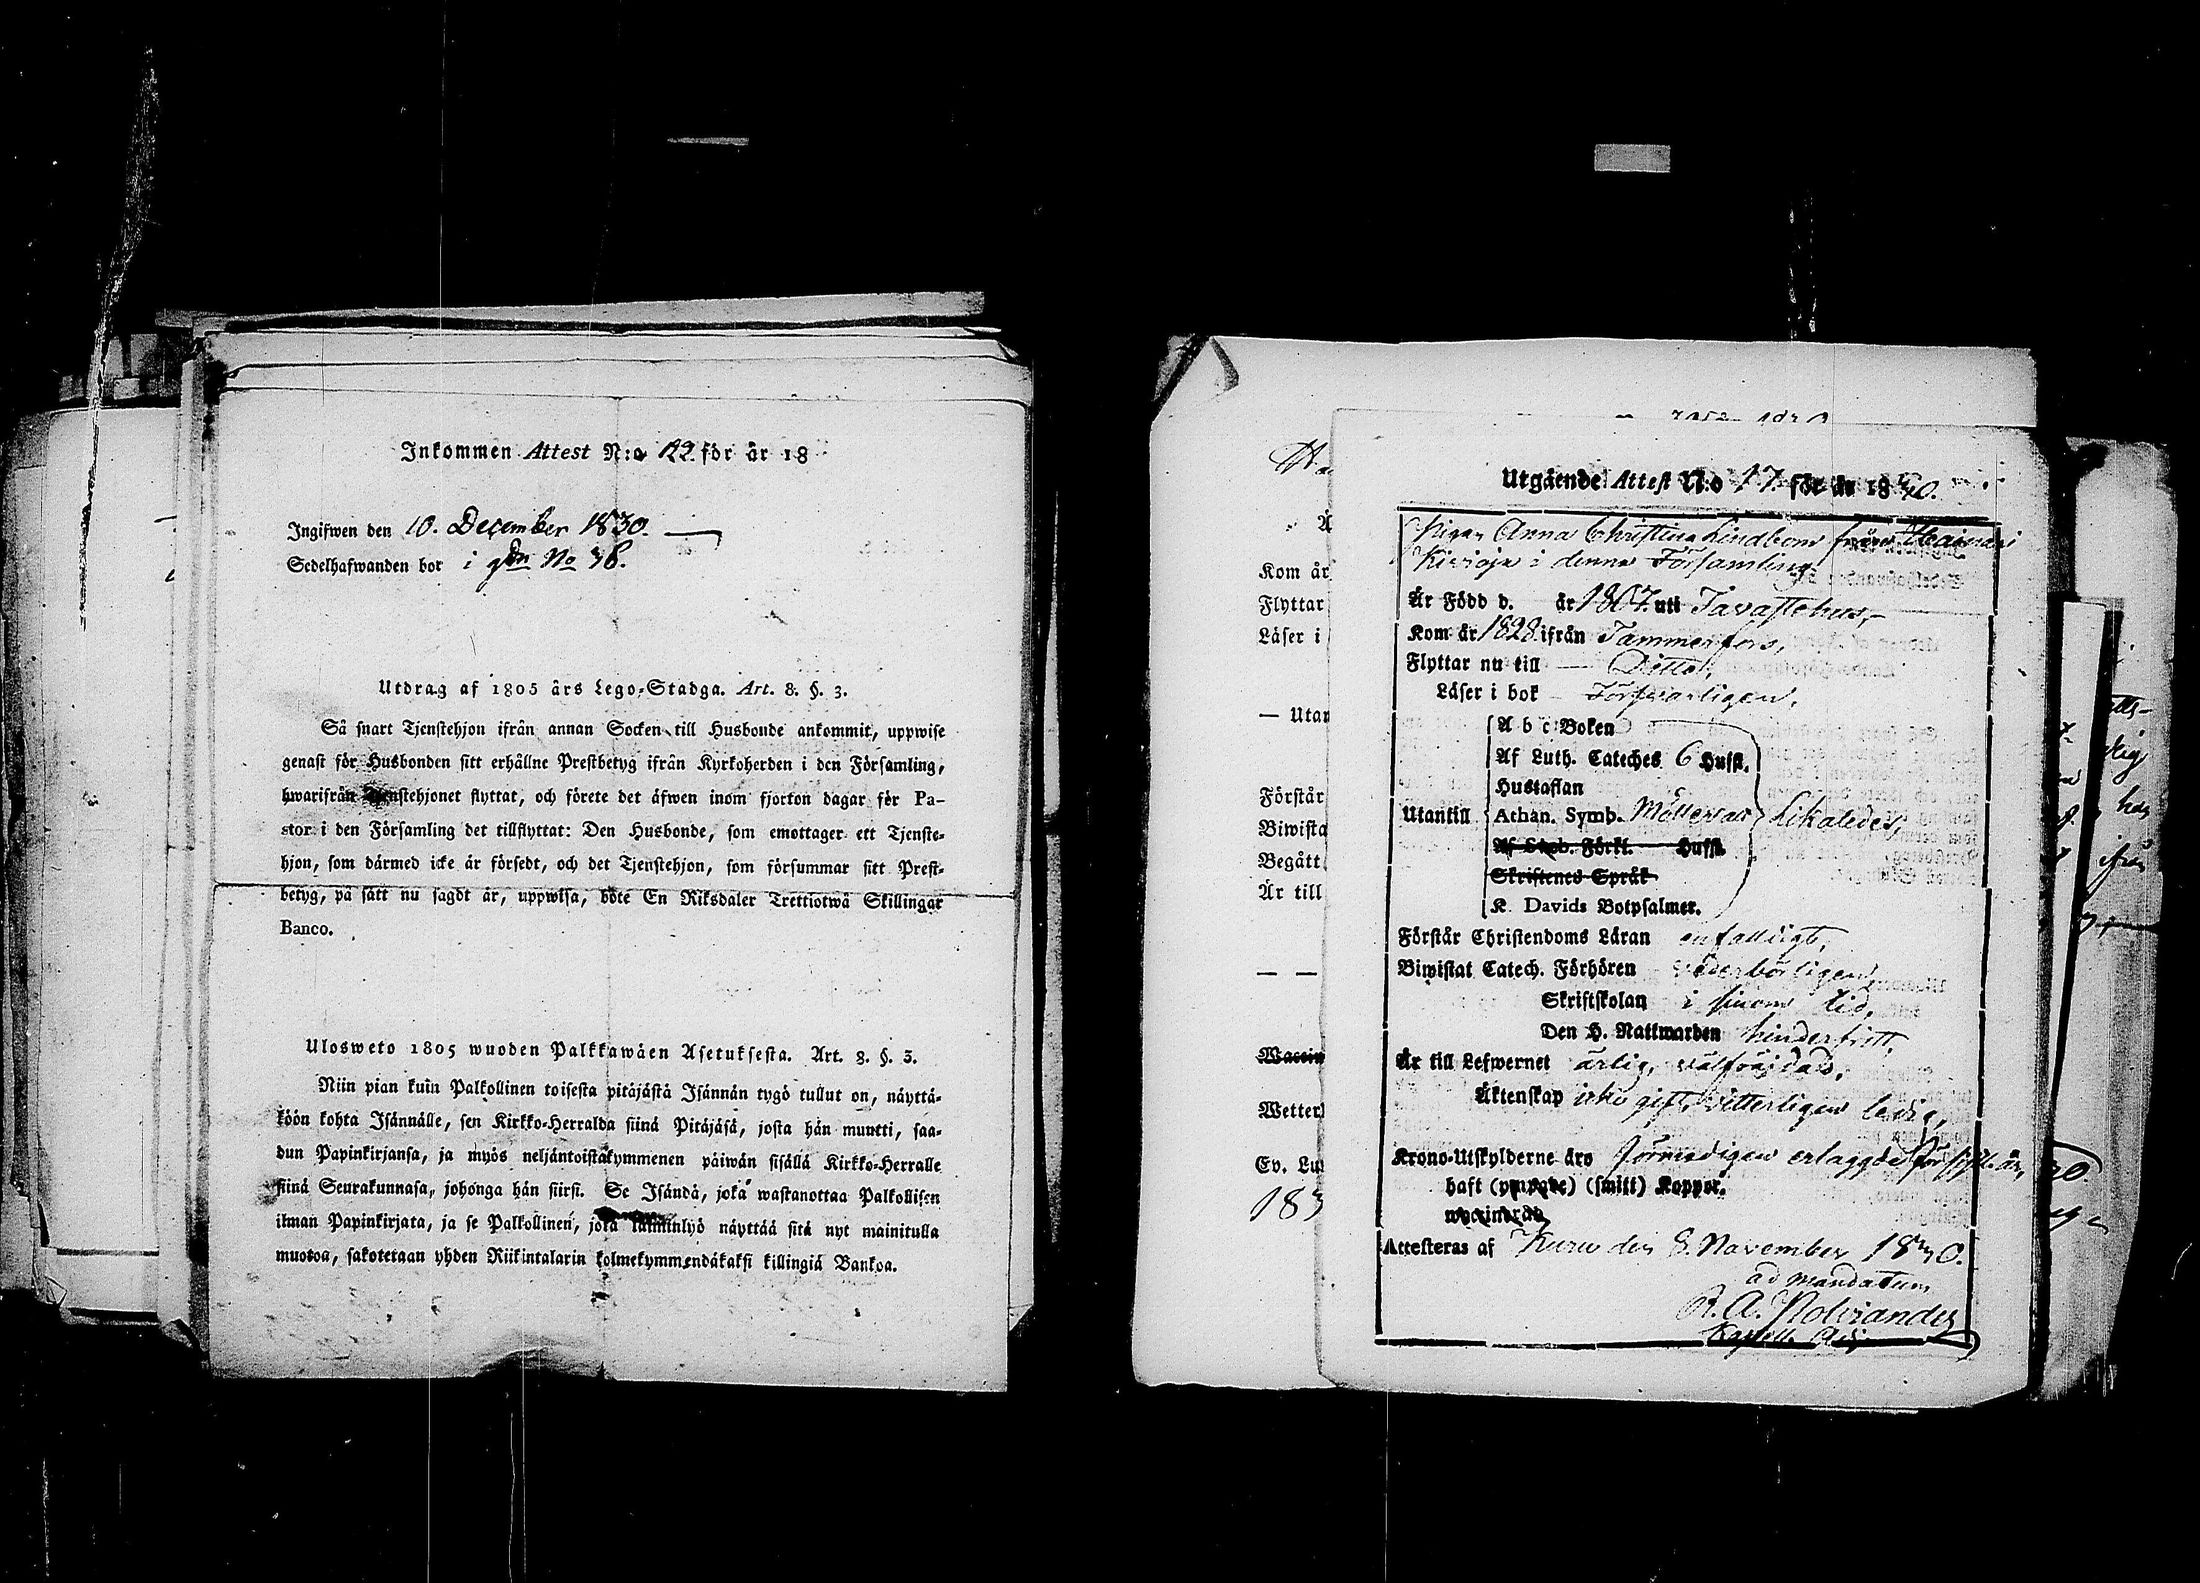 Inkommen Attest N:o 122. för år 18
Ingifwen den 10. December 1830.
Sedelhafwanden bor i gdn No 38.
Utdrag af 1805 års Lego-Stadga. Art. 8. §. 3.
Så snart Tjenstehjon ifrån annan Socken till Husbonde ankommit, uppwise
genast för Husbonden sitt erhållne Prestbetyg ifrån Kyrkoherden i den Församling,
hwarifrån Tjenstehjonet flyttat, och förete det äfwen inom fjorton dagar för Pa-
stor i den Församling det tillflyttat: Den Husbonde, som emottager ett Tjenste-
hjon, som därmed icke är försedt, och det Tjenstehjon, som försummar sitt Prest-
betyg, på sätt nu sagdt är, uppwisa, böte En Riksdaler Trettiotwå Skillingar
Banco.
Ulosweto 1805 wuoden Palkkawäen Asetuksesta. Art. 8. §. 3.
Niin pian kuin Palkollinen toisesta pitäjästä Isännän tygö tullut on, näyttä-
köön kohta Isännälle, sen Kirkko-Herralda siinä Pitäjäsä, josta hän muutti, saa-
dun Papinkirjansa, ja myös neljäntoistakymmenen päiwän sisällä Kirkko-Herralle
siinä Seurakunnasa, johonga hän siirsi. Se Isändä, joka wastanottaa Palkollisen
ilman Papinkirjata, ja se Palkollinen, joka laiminlyö näyttää sitä nyt mainitulla
muotoa, sakotetaan yhden Riikintalarin kolmekymmendäkaksi killingiä Bankoa.
Kom år
Flyttar
Läser i
— Utan
Förstår
Biwista
Begått
Är till
— —
Waccin
Wetterl
Ev. Lu
183
Utgående Attest N:o 17 för år 1830.
Pigan Anna Christina Lindbom från
i denna Församling
Är Född d. år 1807. uti Tavastehus,
Kom år 1828. ifrån Tammerfors,
Flyttar nu till — Ditto,
Läser i bok Försvarligen,
A b c Boken
Af Luth. Cateches 6 Hufst.
Hustaflan
Utantill Athan. Symb. Likaledes,
Af Steb. Förkl. Hufst.
Skriftenes Språk
K. Davids Botpsalmer.
Förstår Christendoms Läran enfaldigt,
Biwistat Catech. Förhören vederbörligen,
Skriftskolan i sinom tid,
Den H. Nattwarden hinderfritt,
Är till Lefwernet ärlig, välfräjdad,
Äktenskap icke gift, vitterligen ledig,
Krono-Utskylderne äro förmedigen erlagde för sistl. år,
haft (ympade) (smitt) Koppor.
waccinerad
Attesteras af Kuru den 8. November 1830.
ad mandatum
R. A. Polviander
Kapell. Adj.